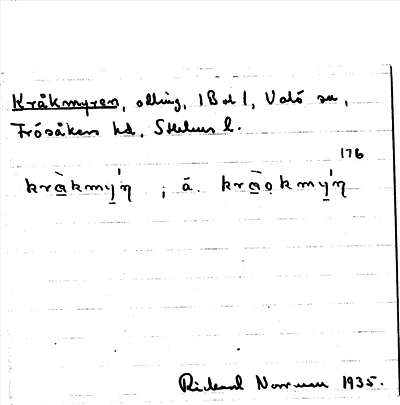 Kråkmyren, odling, 1 Bd 1, Valö sn,
Frösåkers hd, Sthlms l.
176
kràkmy'ŋ ; ä. krào̤kmy'ŋ
Rickard Norrman 1935.